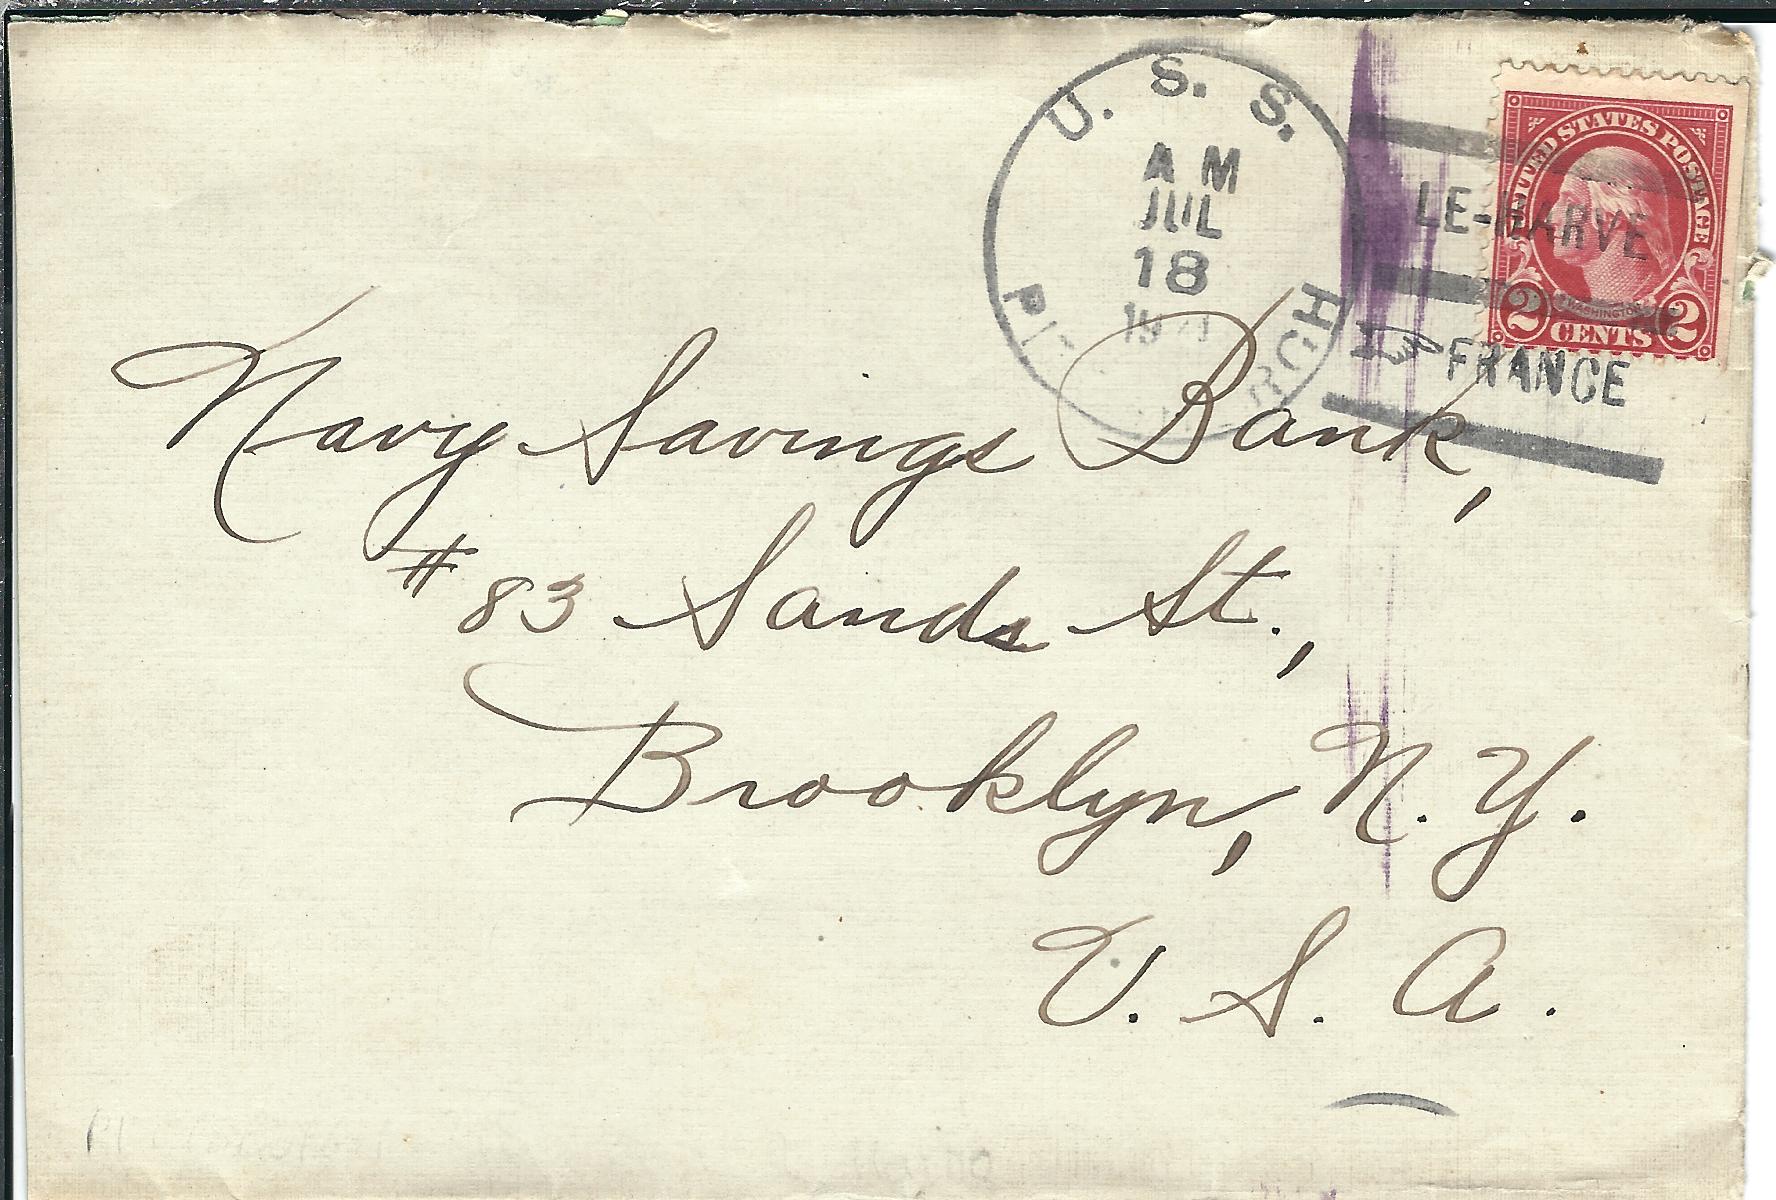 U. S. S.
AM
JUL
18
LE-HARVE
FRANCE
UNITED STATES POSTAGE
WASHINGTON
2 CENTS 2
Navy Savings Bank,
#83 Sands St.,
Brooklyn, N. Y.
U. S. A.